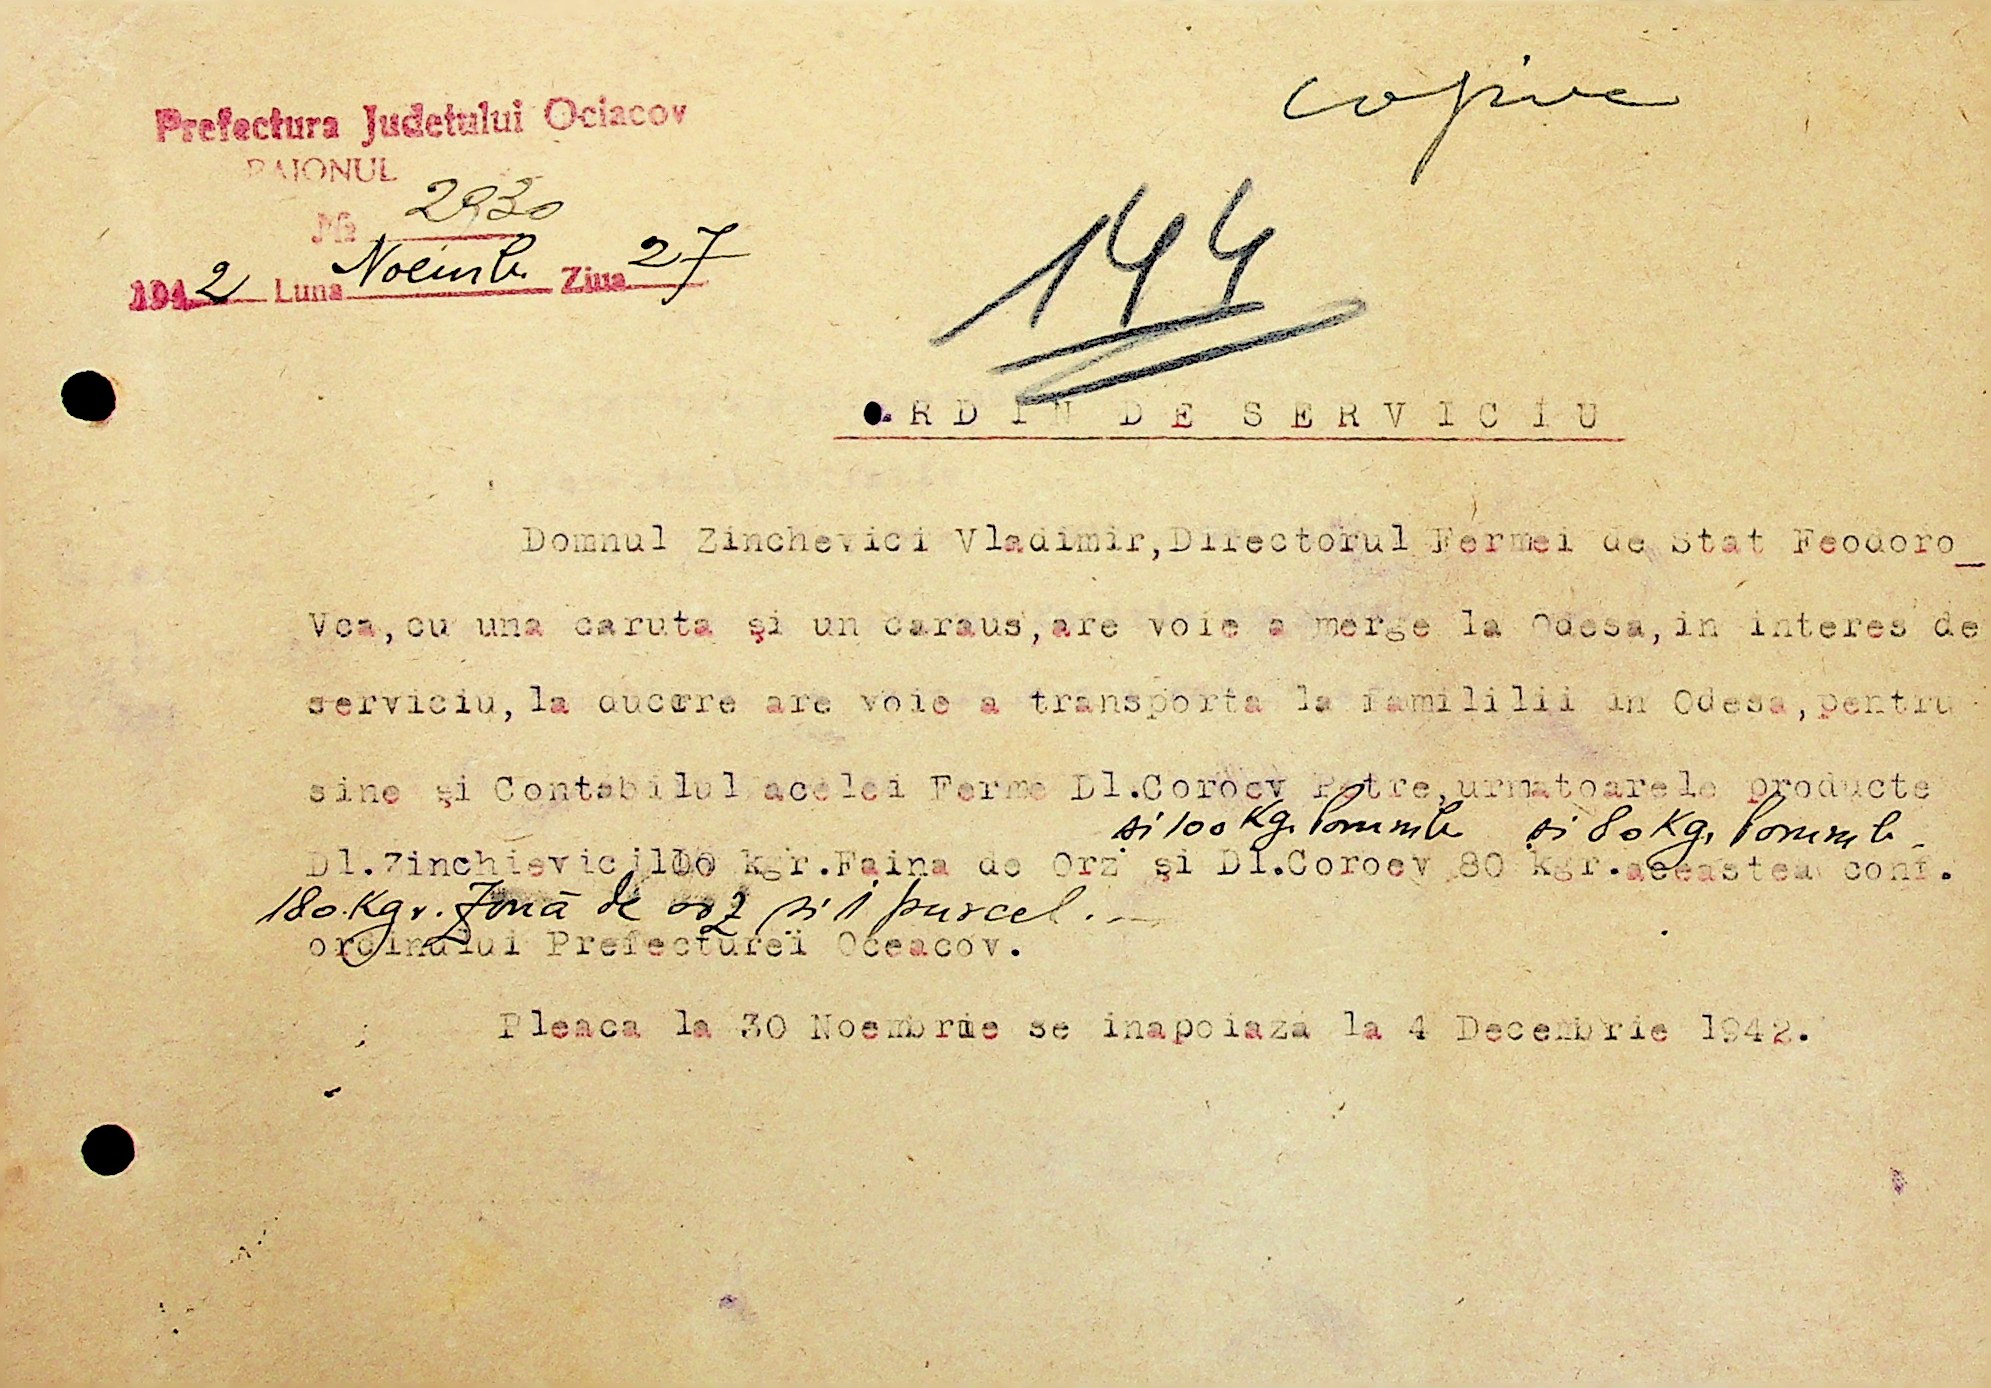 copie
Prefectura Judetului Ociacov
RAIONUL
№ 2930
1942 Luna Noemb. Ziua 27
144
ORDIN DE SERVICIU
Domnul Zinchevici Vladimir,Directorul Fermei de Stat Feodoro_
Vca,cu una caruta și un caraus,are voie a merge la Odesa,in interes de
serviciu,la ducere are voie a transporta la famililii in Odesa,pentru
sine și Contabilul acelei Ferme Dl.Coroev Petre,urmatoarele producte
si 100 Kg. Porumb si 80 Kg. Porumb
Dl.Zinchievici 100 kgr.Faina de Orz și Dl.Coroev 80 kgr.aceastea conf.
180 Kgr. de orz si 1 purcel.
ordinului Prefecturei Oceacov.
Pleaca la 30 Noembrie se inapoiaza la 4 Decembrie 1942.